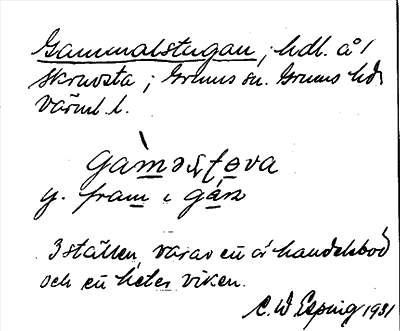 Gammalstugan, hdl. å 1
Skruvsta; Grums sn. Grums hd.
Värml. l.
y. fram i gån
3 ställen varav en är handelsbod
och en heter viken.
C. W Esping 1931